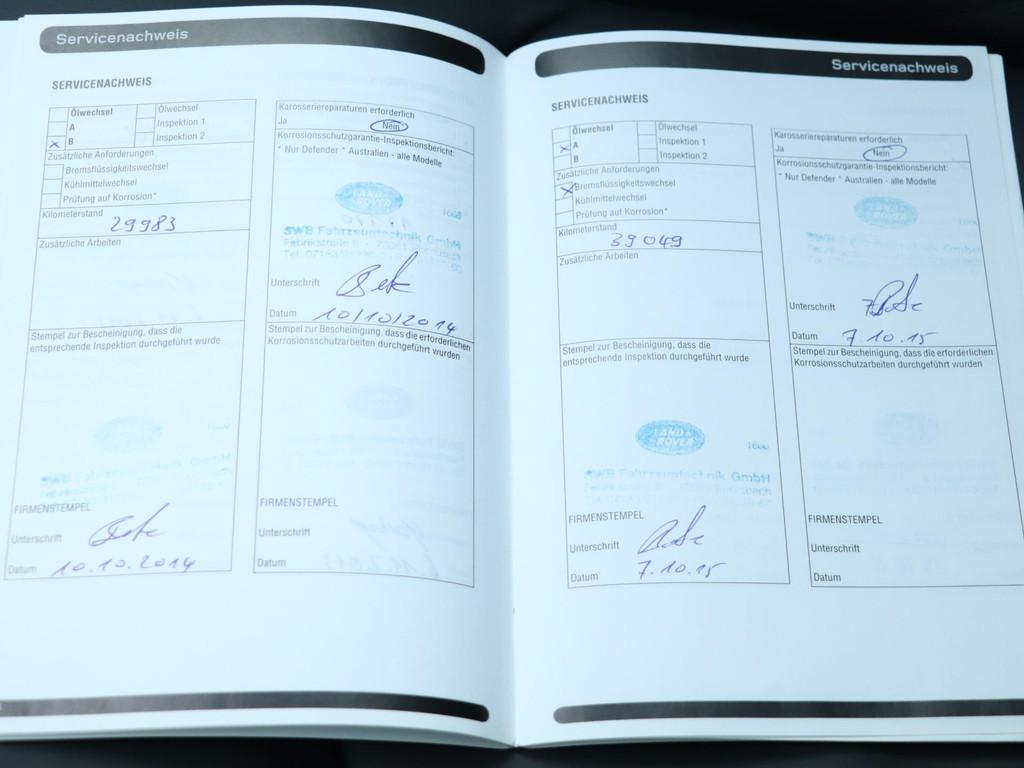 Servicenachweis
SERVICENACHWEIS
Ölwechsel
A
B
Ölwechsel
Inspektion 1
Inspektion 2
Zusätzliche Anforderungen
Bremsflüssigkeitswechsel
Kühlmittelwechsel
Prüfung auf Korrosion*
Kilometerstand
29983
Zusätzliche Arbeiten
Stempel zur Bescheinigung, dass die
entsprechende Inspektion durchgeführt wurde
SWB Fahrzeugtechnik GmbH
FIRMENSTEMPEL
Unterschrift
Datum 10.10.2014
Karosseriereparaturen erforderlich
Ja Nein
Korrosionsschutzgarantie-Inspektionsbericht:
* Nur Defender * Australien - alle Modelle
LAND ROVER
SWB Fahrzeugtechnik GmbH
Unterschrift
Datum 10/10/2014
Stempel zur Bescheinigung, dass die erforderlichen
Korrosionsschutzarbeiten durchgeführt wurden
FIRMENSTEMPEL
Unterschrift
Datum
Servicenachweis
SERVICENACHWEIS
Ölwechsel
A
B
Ölwechsel
Inspektion 1
Inspektion 2
Zusätzliche Anforderungen
Bremsflüssigkeitswechsel
Kühlmittelwechsel
Prüfung auf Korrosion*
Kilometerstand
39049
Zusätzliche Arbeiten
Stempel zur Bescheinigung, dass die
entsprechende Inspektion durchgeführt wurde
LAND ROVER
SWB Fahrzeugtechnik GmbH
FIRMENSTEMPEL
Unterschrift
Datum 7.10.15
Karosseriereparaturen erforderlich
Ja Nein
Korrosionsschutzgarantie-Inspektionsbericht:
* Nur Defender * Australien - alle Modelle
Unterschrift
Datum 7.10.15
Stempel zur Bescheinigung, dass die erforderlichen
Korrosionsschutzarbeiten durchgeführt wurden
FIRMENSTEMPEL
Unterschrift
Datum